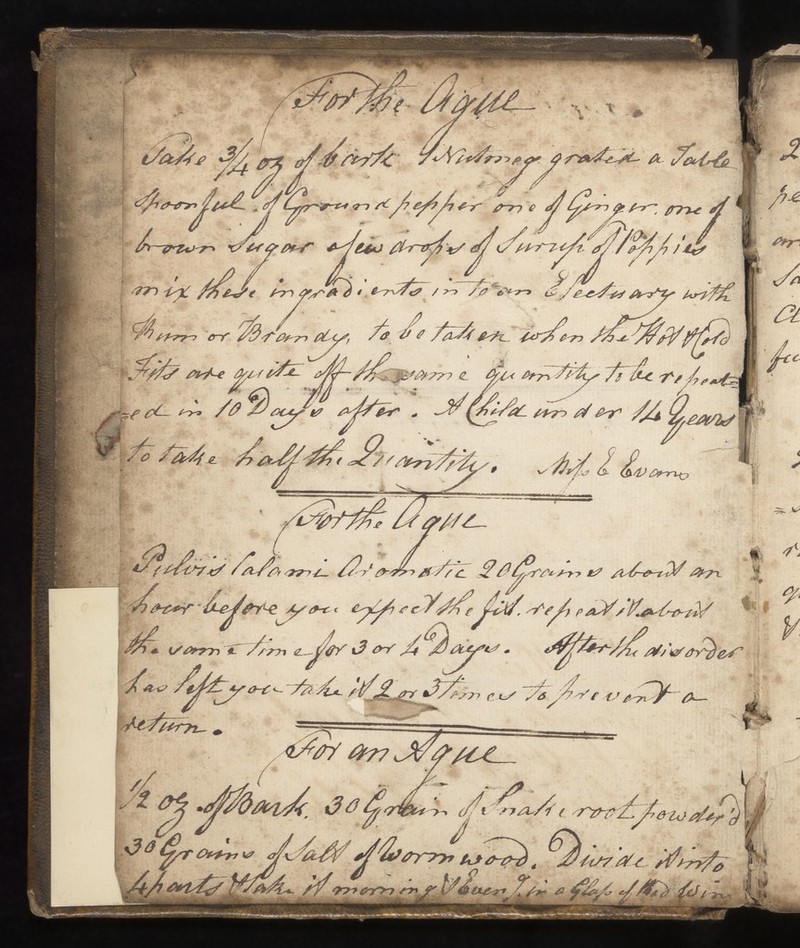 For the Ague
Take 3/4 oz of bark 1 Nutmeg grated a Table
Spoonful of Ground pepper one of Ginger. one of
brown Sugar a few drops of Surup of Poppies
mix these ingradients in to an Electuary with
Rum or Brandy, to be taken when the Hot & Cold
Fits are quite off the same quantity to be repeat=
=ed in 10 Days after. A Child under 14 Years
to take half the Quantity. Miss E Evans
For the Ague
Pulvis Calami Aromatic 20 Grains about an
hour before you expect the fit. repeat it about
the same time for 3 or 4 Days. After the disorder
has left you take it 2 or 3 times to prevent a
return.
For an Ague
1/2 oz of Bark. 30 Grain of Snake root powder'd
30 Grains of Salt of Wormwood. Divide it into
4 parts & take it morning & Eveng. in a Glass of Red Wine